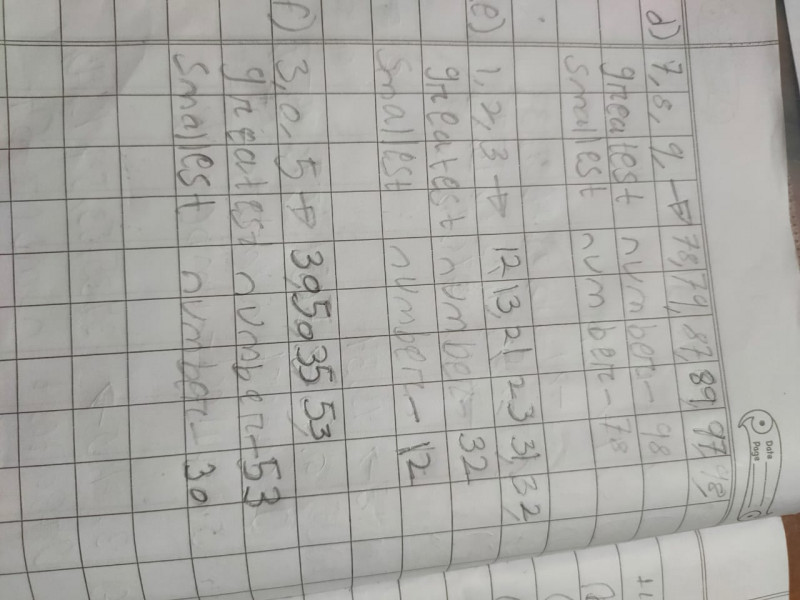 Date
Page
d) 7, 8, 9 → 78, 79, 87, 89, 97, 98
greatest number - 98
smallest number - 78
e) 1, 2, 3 → 12, 13, 21, 23, 31, 32
greatest number - 32
smallest number - 12
f) 3, 0, 5 → 30, 50, 35, 53,
greatest number - 53
smallest number - 30